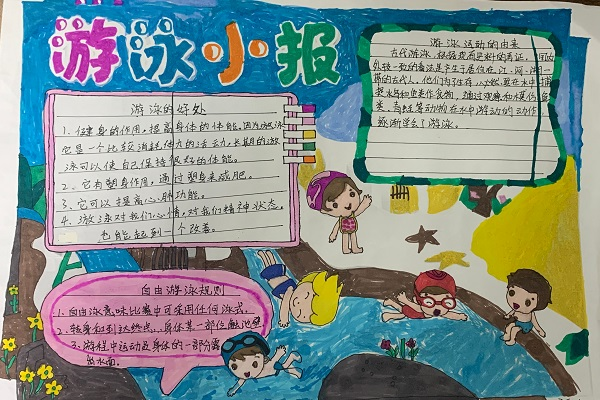 游泳小报
游泳的好处
1、健身的作用，提高身体的体能。因为游泳
它是一个比较消耗体力的活动，长期的游
泳可以使自己保持很好的体能。
2、它有塑身作用，通过塑身来减肥。
3、它可以提高心肺功能。
4、游泳对我们心情，对我们精神状态，
也能起到一个改善。
游泳运动的由来
古代游泳，根据现有史料的考证，
外较一致的看法是产生于居住在江、河、湖、海一
带的古代人。他们为了生存，必然要在水中捕
捉水鸟和鱼类作食物，通过观察和模仿鱼
类、青蛙等动物在水中游动的动作，
逐渐学会了游泳。
自由游泳规则
1、自由泳意味比赛中可采用任何泳式。
2、转身和到达终点，身体某一部位触池壁
3、游程中运动及身体的一部分露
出水面。